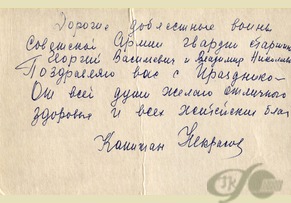 Дорогие доблестные воины
Советской Армии гвардии старшины
Георгий Васильевич и Владимир Николаевич
Поздравляю вас с Праздником
От всей души желаю отличного
здоровья и всех житейских благ
Капитан Некрасов